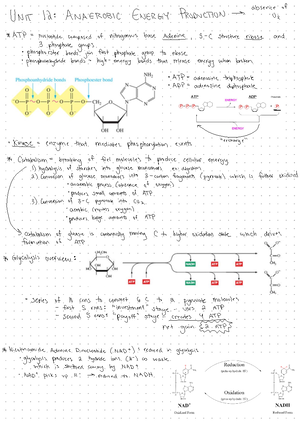 UNIT 12: ANAEROBIC ENERGY PRODUCTION → absence of O₂
* ATP = molecule composed of nitrogenous base Adenine, 5-C structure ribose, and
3 phosphate groups.
- phosphoester bonds = join first phosphate group to ribose
- phosphoanhydride bonds = high energy bonds that release energy when broken
Phosphoanhydride bonds
Phosphoester bond
• ATP = adenosine triphosphate
• ADP = adenosine diphosphate
ATP
ENERGY
ADP
ENERGY
"recharge"
* Kinase = enzyme that mediates phosphorylation events
* Catabolism = breaking of fuel molecules to produce cellular energy
1) Hydrolysis of starches into glucose monomers ex: digestion
2) Conversion of glucose monomers into 3-carbon fragments (pyruvate) which is further oxidized
• anaerobic process (absence of oxygen)
• produces small amounts of ATP
3) Conversion of 3-C pyruvate into CO₂
• aerobic (needs oxygen)
• produces large amounts of ATP
Catabolism of glucose is continually moving C to higher oxidation state which drives
formation of ATP
* Glycolysis overview:
ATP
ATP
NADH
ATP
ATP
NADH
ATP
ATP
• Series of rxns to convert 6 C to 2 pyruvate molecules
- first 5 rxns: "investment" stage - uses 2 ATP
- second 5 rxns: "payoff" stage: creates 4 ATP
net gain (2 ATP)
* Nicotinamide Adenine Dinucleotide (NAD⁺): reduced in glycolysis
• glycolysis produces 2 hydride ions (H⁻) as waste
which is shuttled away by NAD⁺
• NAD⁺ picks up H⁻ → reduced to NADH
Reduction
Oxidation
NAD⁺
Oxidized Form
NADH
Reduced Form